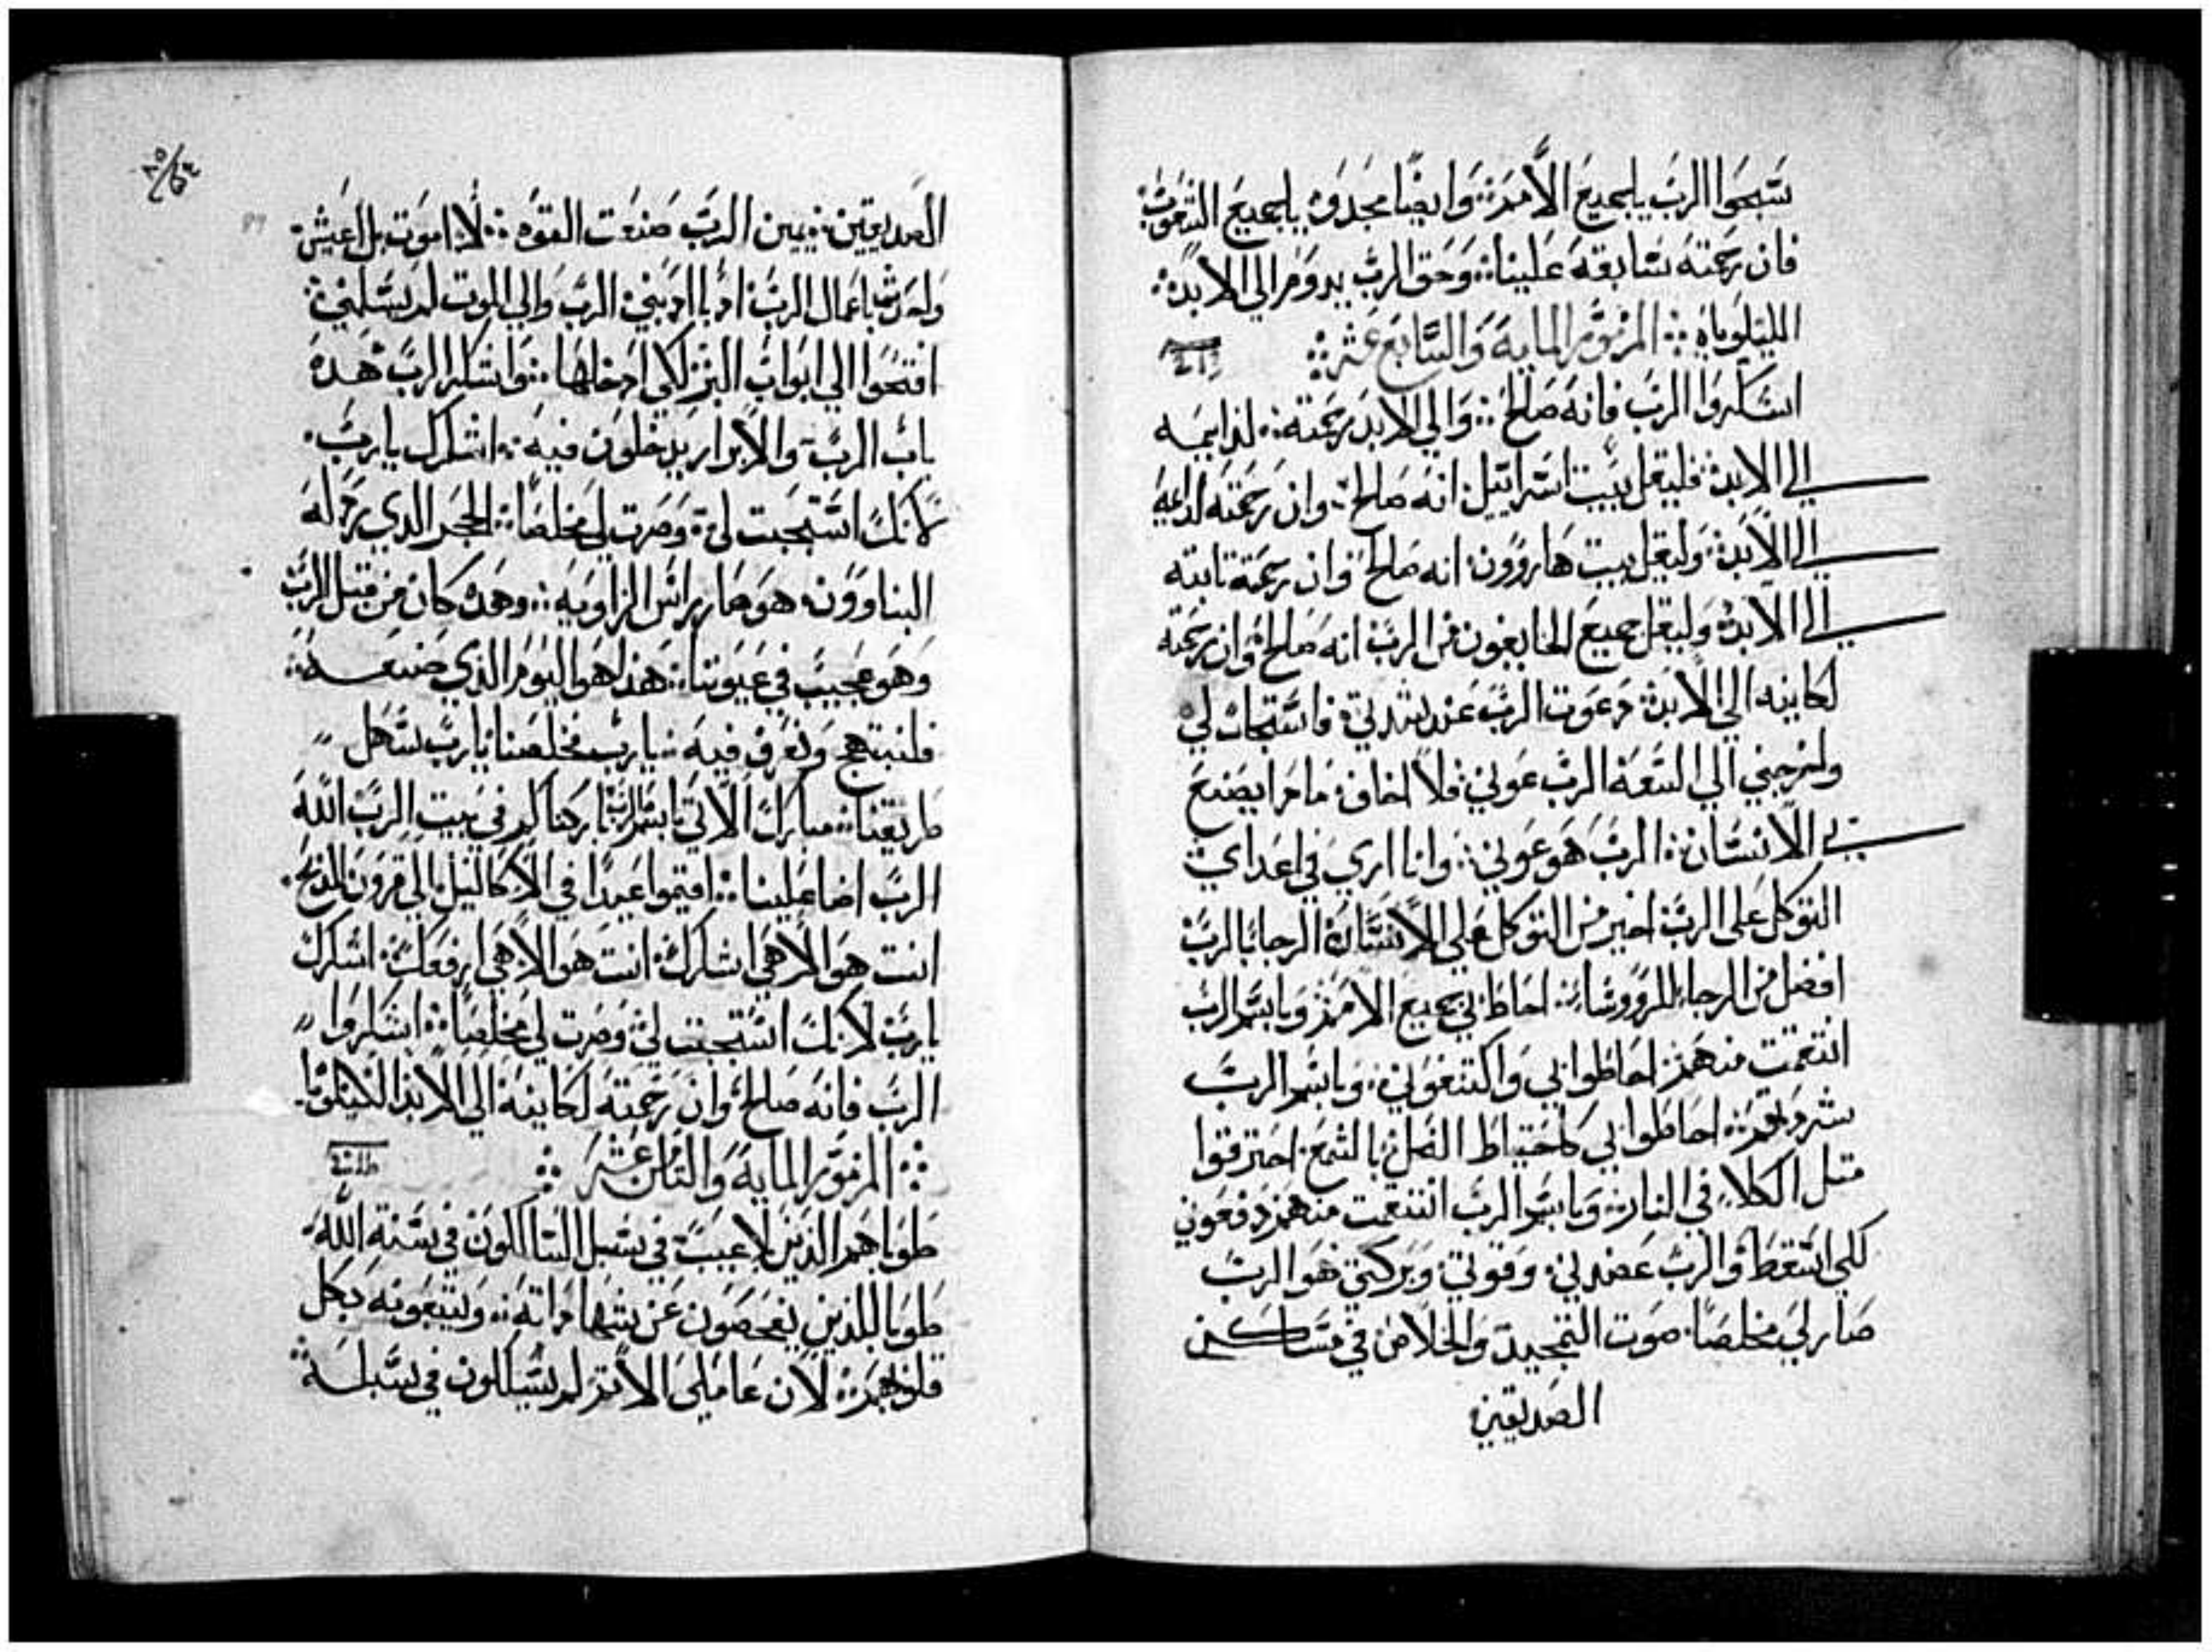 سبحوا الرب ياجميع الأمم: وايضًا مجدوه ياجميع الشعوب:
فان رحمته سابقه علينا: وحق الرب يدوم الي الابد:
الليلوياه: المزمور المايه والسابع عشر:
اشكروا الرب فانه صالح: والي الابد رحمته: لدايمه
الي الابد: فليقل بيت اسراييل انه صالح: وان رحمته لدايمه
الي الابد: وليقل بيت هاروون انه صالح وان رحمته تابته
الي الابد: وليقل جميع الخايفون من الرب انه صالح: وان رحمته
لكاينه الي الابد: دعوت الرب عند شدتي: فاستجاب لي
واخرجني الي السعه: الرب عوني: فلا اخاف: مادا يصنع
بي الانسان: الرب هو عوني: وانا اري في اعداي
التوكل علي الرب اخير من التوكل علي الانسان: الرجا بالرب
افضل من الرجا للرووسا: احاط بي جميع الامم: وباسم الرب
انتقمت منهم: احاطوا بي واكتنفوني: وباسم الرب
شردتهم: احاطوا بي كاحتياط النحل بالشمع: احترقوا
متل الكلا في النار: وباسم الرب انتقمت منهم: دفعوني
لكي اسقط والرب عضدني: وقوتي وبركتي هو الرب
صار لي مخلصًا: صوت التمجيد والخلاص في مساكن
الصديقين
الصديقين: يمين الرب صنعت القوه: لا اموت بل اعيش:
واحدث باعمال الرب: ادبا ادبني الرب والي الموت لم يسلمني:
افتحوا الي ابواب البر لكي ادخلها: واشكر الرب هده
باب الرب والابرار يدخلون فيه: اشكرك يارب:
لانك استجبت لي: وصرت لي مخلصًا: الحجر الدي رذله
البناوون: هو صار براس الزاويه: وهده كان من قبل الرب
وهو عجيب في عيوننا: هذا هو اليوم الذي صنعه:
فلنبتهج ونفرح فيه: يارب مخلصنا يارب سهل
طريقنا: مبارك الاتي باسم الرب باركناكم في بيت الرب الله
الرب اضا علينا: اقيموا عيدًا في الاكاليل: الي قرون المذبح:
انت هو الاهي اشكرك: انت هو الاهي ارفعك: اشكرك
يارب لانك استجبت لي وصرت لي مخلصًا: اشكروا
الرب فانه صالح: وان رحمته لكاينه الي الابد الليلويا:
المزمور المايه والتامن عشر
طوباهم الذين لا عيب في سبل السالكون في سنة الله:
طوبا للذين يفحصون عن شهاداته: ويتبعونه بكل
قلوبهم: لان عاملي الاتم لم يسلكون في سبله: